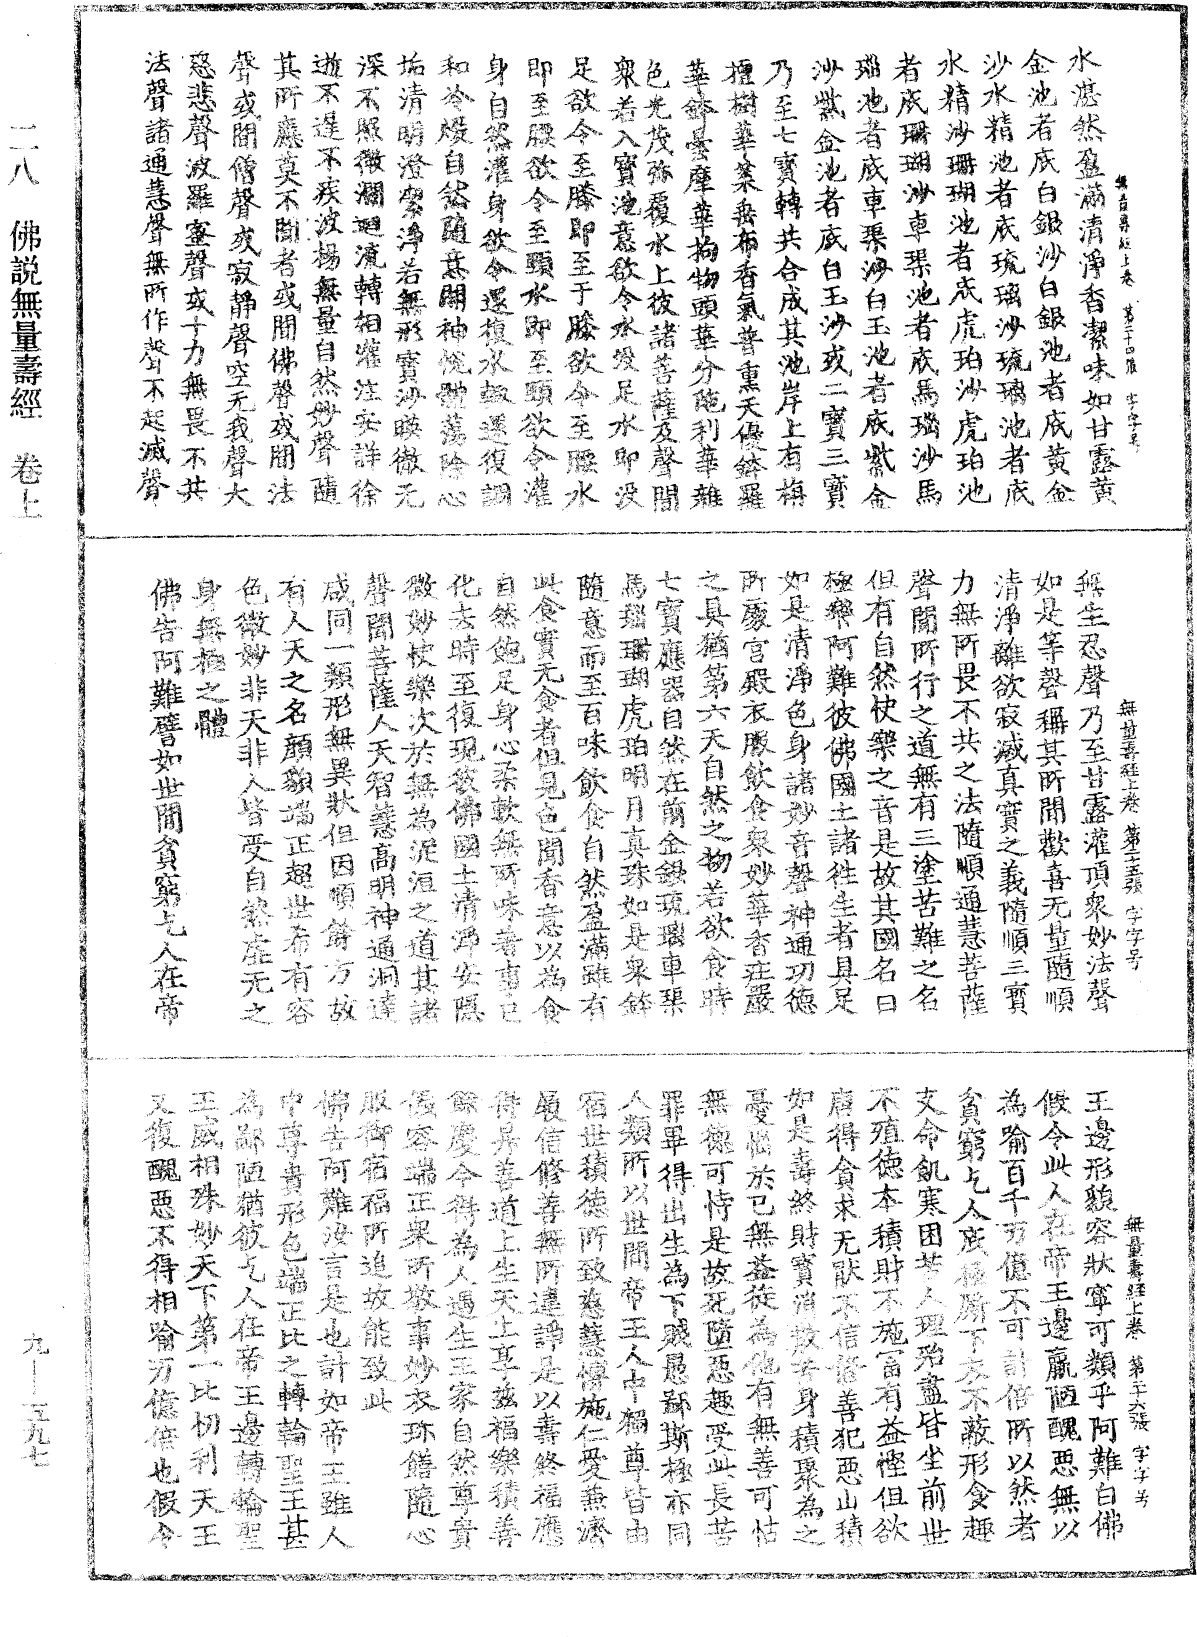 二八　佛説無量壽經　卷上
九—五九七
無量壽經上卷　第二十四張　字字号
水湛然盈滿清淨香潔味如甘露黃
金池者底白銀沙白銀池者底黃金
沙水精池者底琉璃沙琉璃池者底
水精沙珊瑚池者底虎珀沙虎珀池
者底珊瑚沙車渠池者底馬瑙沙馬
瑙池者底車渠沙白玉池者底紫金
沙紫金池者底白玉沙或二寶三寶
乃至七寶轉共合成其池岸上有栴
檀樹華葉垂布香氣普熏天優鉢羅
華鉢曇摩華拘物頭華分陁利華雜
色光茂弥覆水上彼諸菩薩及聲聞
衆若入寶池意欲令水没足水即没
足欲令至膝即至于膝欲令至腰水
即至腰欲令至頸水即至頸欲令灌
身自然灌身欲令還復水輙還復調
和冷煖自然隨意開神悅體蕩除心
垢清明澄潔淨若無形寶沙暎徹无
深不照微瀾迴流轉相灌注安詳徐
逝不遲不疾波楊無量自然妙聲隨
其所應莫不聞者或聞佛聲或聞法
聲或聞僧聲或寂靜聲空无我聲大
慈悲聲波羅蜜聲或十力無畏不共
法聲諸通慧聲無所作聲不起滅聲
無量壽經上卷　第二十五張　字字号
無生忍聲乃至甘露灌頂衆妙法聲
如是等聲稱其所聞歡喜无量隨順
清淨離欲寂滅真實之義隨順三寶
力無所畏不共之法隨順通慧菩薩
聲聞所行之道無有三塗苦難之名
但有自然快樂之音是故其國名曰
極樂阿難彼佛國土諸徃生者具足
如是清淨色身諸妙音聲神通功德
所處宮殿衣服飲食衆妙華香莊嚴
之具猶第六天自然之物若欲食時
七寶應器自然在前金銀琉璃車渠
馬瑙珊瑚虎珀明月真珠如是衆鉢
隨意而至百味飲食自然盈滿雖有
此食實无食者但見色聞香意以為食
自然飽足身心柔軟無所味著事已
化去時至復現彼佛國土清淨安隱
微妙快樂次於無為泥洹之道其諸
聲聞菩薩人天智慧高明神通洞達
咸同一類形無異狀但因順餘方故
有人天之名顏貌端正超世希有容
色微妙非天非人皆受自然虛无之
身無極之體
佛告阿難譬如世間貧窮乞人在帝
無量壽經上卷　第二十六張　字字号
王邊形貌容狀寧可類乎阿難白佛
假令此人在帝王邊羸陋醜惡無以
為喻百千万億不可計倍所以然者
貧窮乞人底極廝下衣不蔽形食趣
支命飢寒困苦人理殆盡皆坐前世
不殖德本積財不施富有益慳但欲
唐得貪求无猒不信脩善犯惡山積
如是壽終財寶消散苦身積聚為之
憂惱於已無益徒為他有無善可怙
無德可恃是故死墮惡趣受此長苦
罪畢得出生為下賤愚鄙斯極亦同
人類所以世間帝王人中獨尊皆由
宿世積德所致慈慧博施仁愛兼濟
履信修善無所違諍是以壽終福應
得昇善道上生天上享兹福樂積善
餘慶今得為人遇生王家自然尊貴
儀容端正衆所敬事妙衣珎饍隨心
服御宿福所追故能致此
佛告阿難汝言是也計如帝王雖人
中尊貴形色端正比之轉輪聖王甚
為鄙陋猶彼乞人在帝王邊轉輪聖
王威相殊妙天下第一比忉利天王
又復醜惡不得相喻万億倍也假令